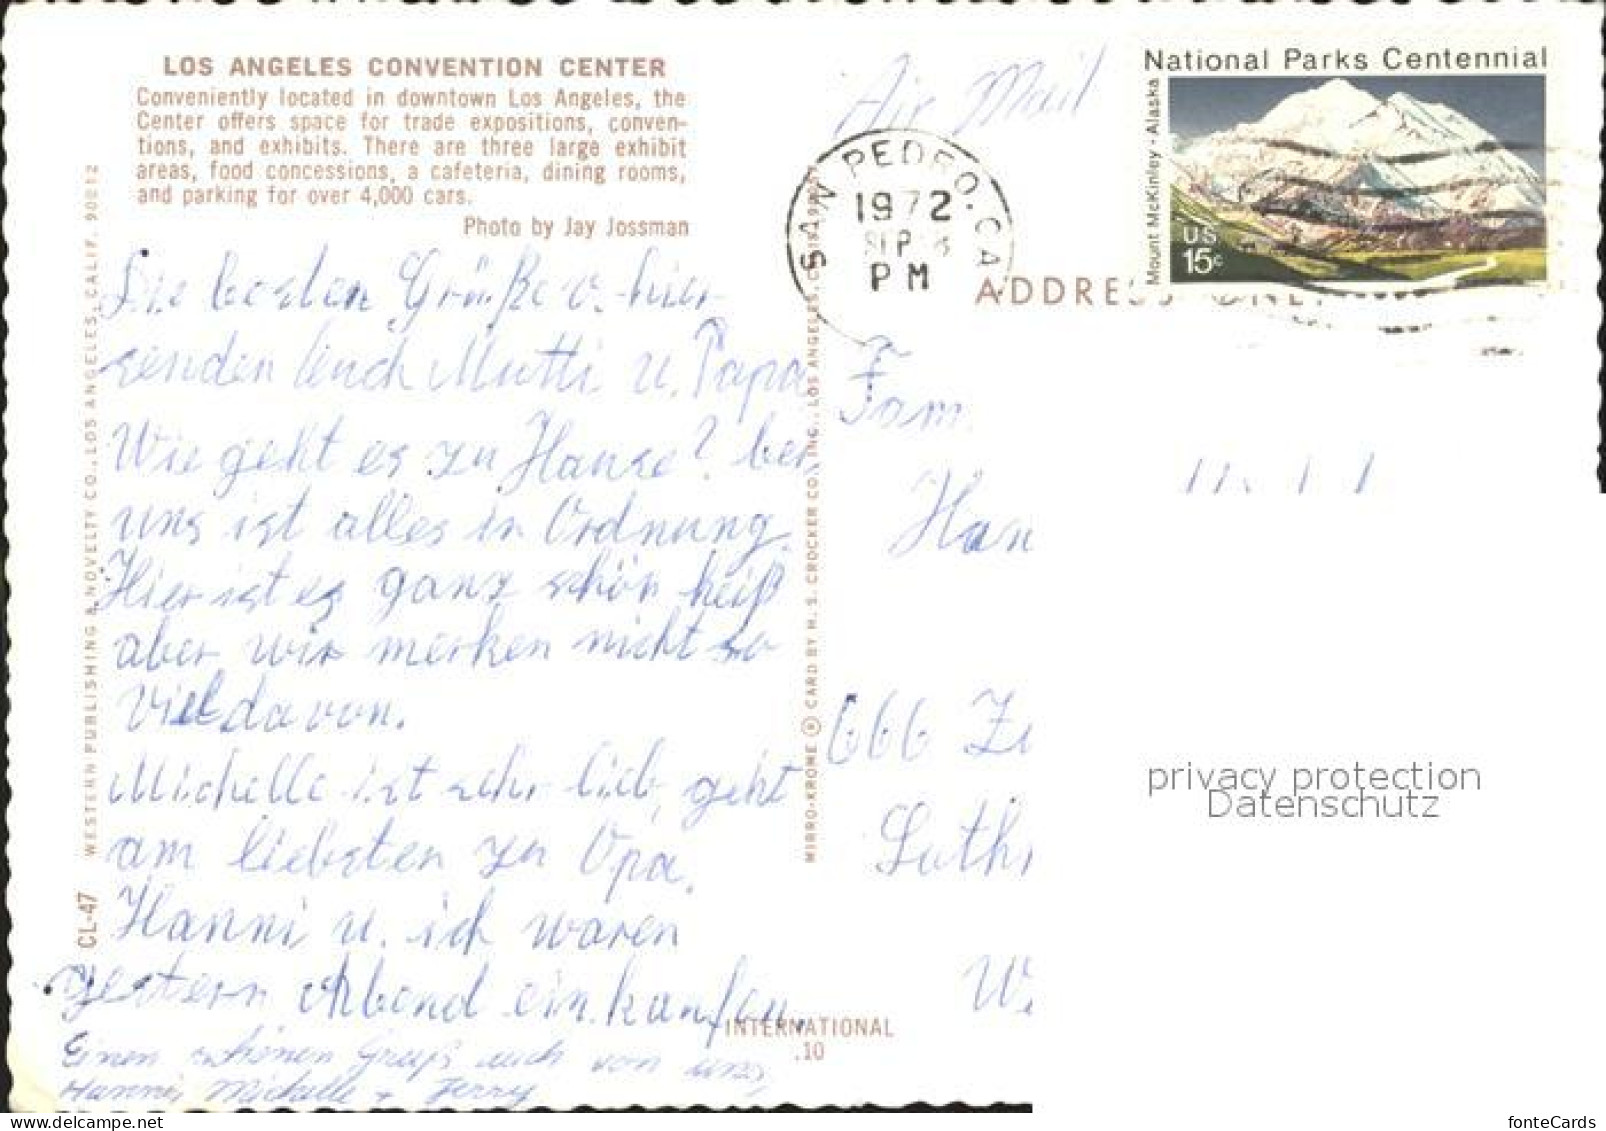 LOS ANGELES CONVENTION CENTER
Conveniently located in downtown Los Angeles, the
Center offers space for trade expositions, conven-
tions, and exhibits. There are three large exhibit
areas, food concessions, a cafeteria, dining rooms,
and parking for over 4,000 cars.
Photo by Jay Jossman
Die besten Grüße v. hier
senden Euch Mutti u. Papa
Wie geht es zu Hause? bei
uns ist alles in Ordnung.
Hier ist es ganz schön heiß
aber wir merken nicht so
viel davon.
Michelle ist sehr lieb, geht
am liebsten zu Opa.
Hanni u. ich waren
gestern Abend einkaufen.
Einen schönen Gruß auch von uns
Hanni, Michelle + Jerry
WESTERN PUBLISHING & NOVELTY CO., LOS ANGELES, CALIF. 90012
CL-47
MIRRO-KROME ® CARD BY H. S. CROCKER CO., INC., LOS ANGELES,
INTERNATIONAL
.10
Air Mail
SAN PEDRO, CA
1972
SEP
PM
National Parks Centennial
Mount McKinley · Alaska
US
15c
ADDRESS ONLY
Fam.
Han
666 Z
W
privacy protection
Datenschutz
fonteCards